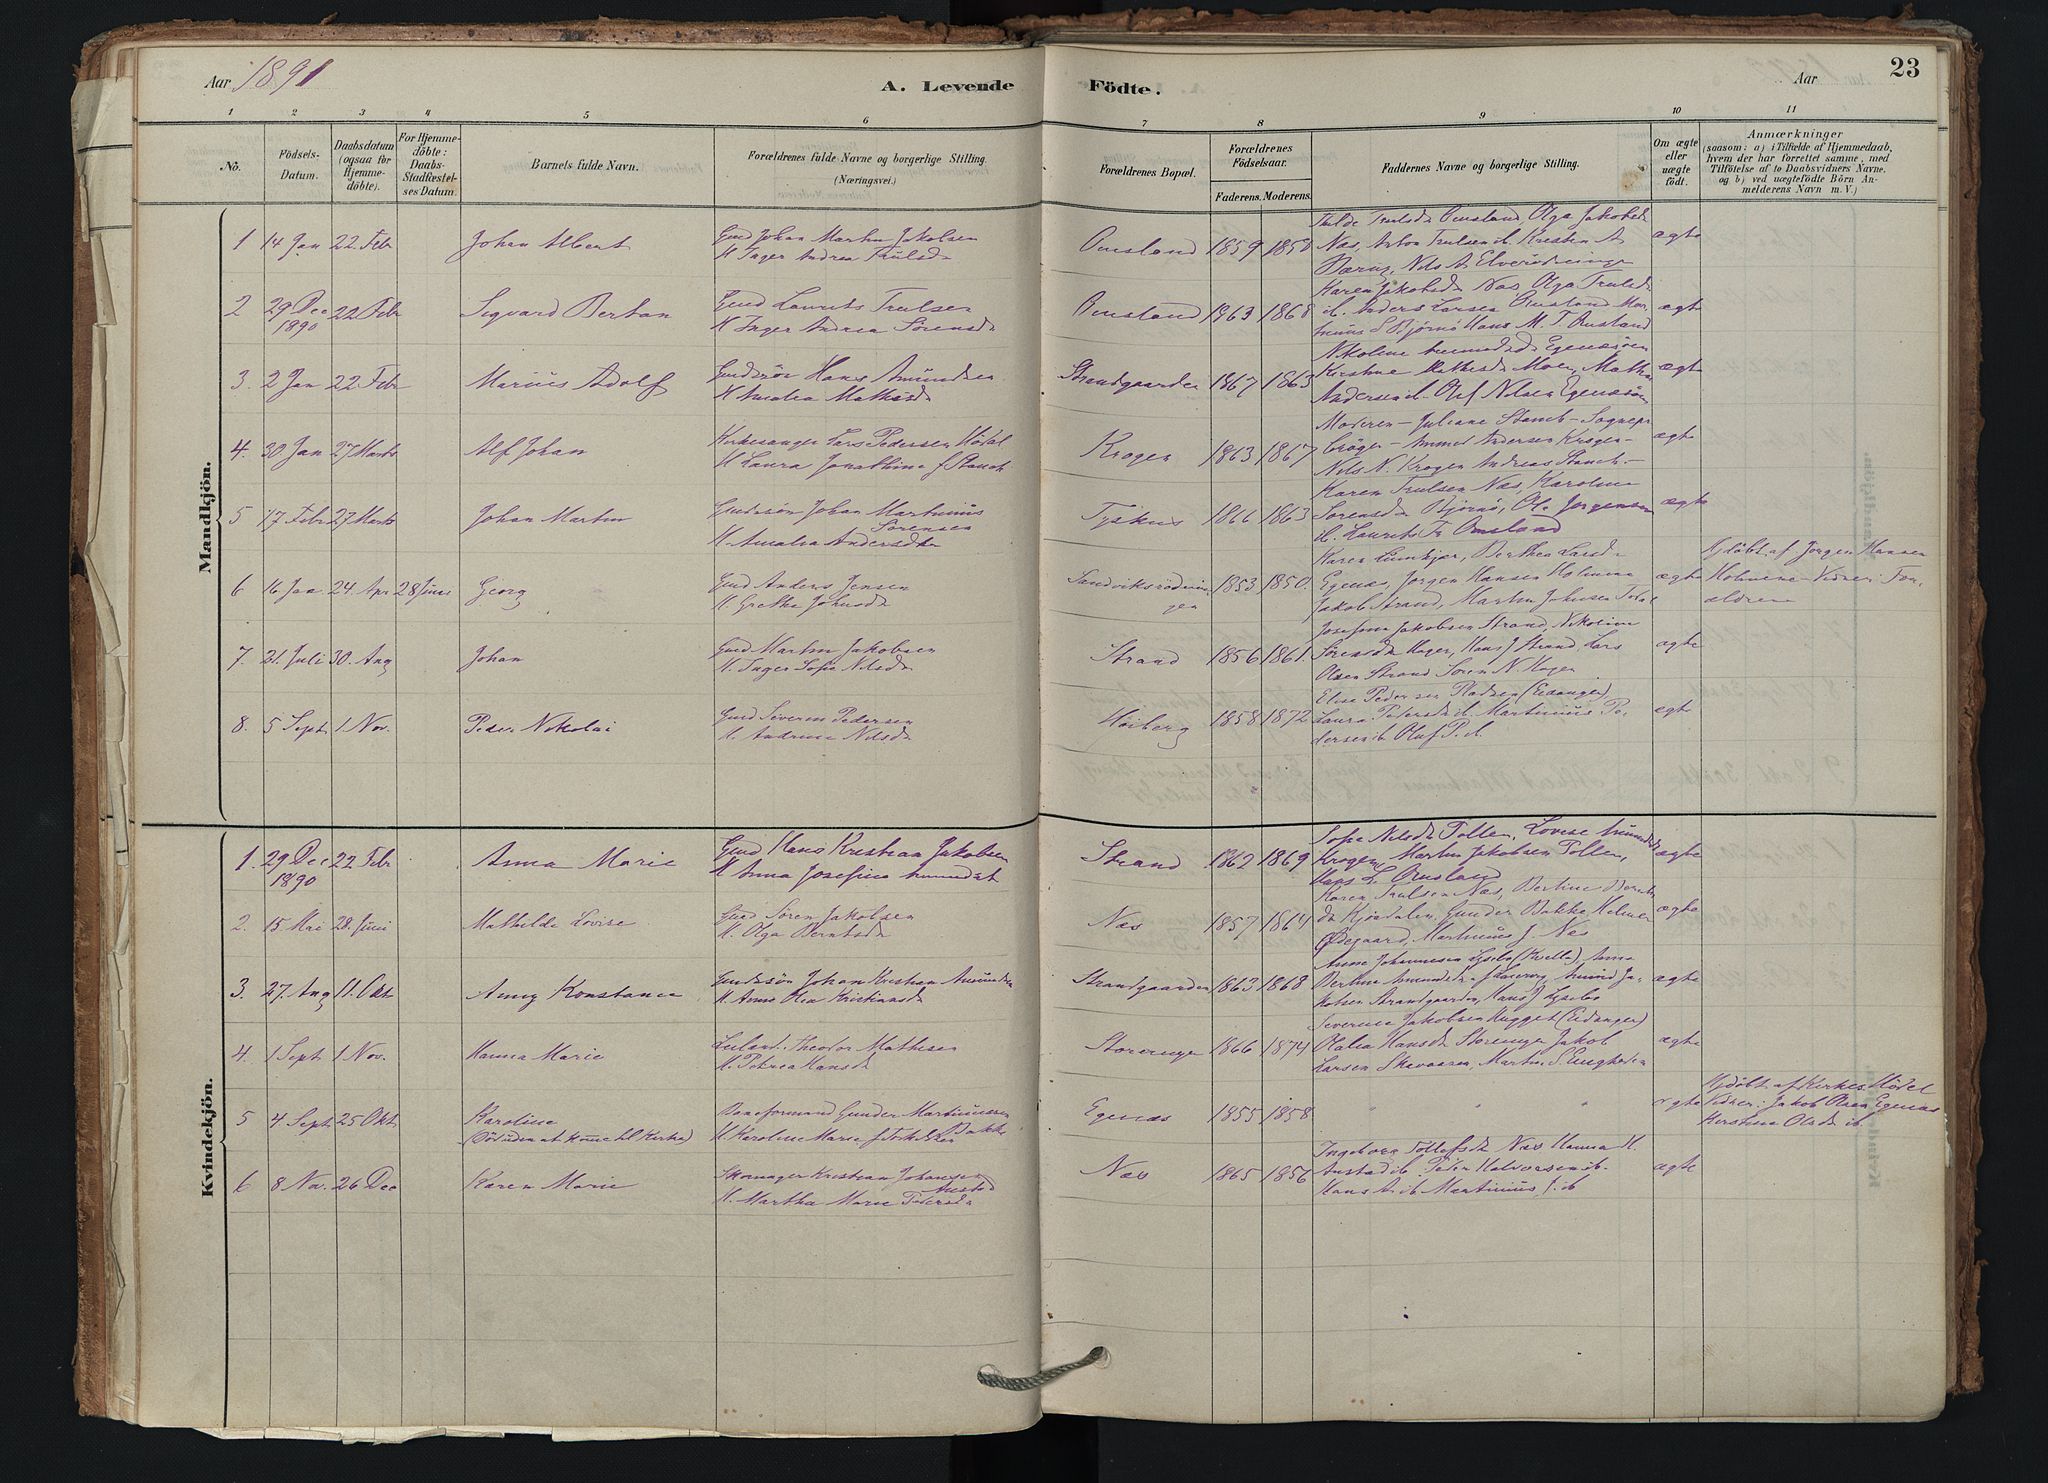 Aar 1891
A. Levende Födte.
Aar
23
1 2 3 4 5 6 7 8 9 10 11
No.
Födsels-Datum.
Daabsdatum (ogsaa for Hjemmedöbte).
For Hjemmedöbte: Daabs-Stadfæstelses Datum.
Barnets fulde Navn.
Forældrenes fulde Navne og borgerlige Stilling. (Næringsvei.)
Forældrenes Bopæl.
Forældrenes Födselsaar.
Faderens. Moderens.
Faddernes Navne og borgerlige Stilling.
Om ægte eller uægte födt.
Anmærkninger
(saasom: a) i Tilfælde af Hjemmedaab, hvem der har forrettet samme, med Tilföielse af to Daabsvidners Navne, og b) ved uægtefödte Börn Anmelderens Navn m. V.)
Mandkjön.
1 14 Jan 22 Febr Johan Albert
Gmd Johan Martin Jakobsen
H Inger Andrea Trulsd
Omsland 1859 1850
Trulsd Omsland Olga Jakobsd
Næs, Anton Trulsen ib Kristen A
Nils A
ægte
2 29 Dec 1890 22 Febr Sigvard Bertan
Gmd Laurits Trulsen
H Inger Andrea Sörensd
Omsland 1863 1868
Karen Jakobsd Næs, Olga Trulsd
ib Anders Larsen Omsland Mar-
tinius S Bjørnø Hans M. T. Omsland
ægte
3 2 Jan 22 Febr Marius Adolf
Hans Amundsen
H Amalia Mathisd
Strandgaarden 1867 1863
Nikoline Egenæsøen
Kirstine Mathisd Moen
Andersen ib Olaf Nilsen Egenæsøen
ægte
4. 30 Jan 27 Marts Alf Johan
Kirkesanger Lars Pedersen Hödal
H Laura Jonathine f Stamb
Krogen 1863 1867
Moderen - Juliane Stamb - Sognepr
Crøger - Ammed Andersen Krogen -
Nils N. Krogen Andreas Stamb -
ægte
5 17 Febr 27 Marts Johan Martin
Johan Martinius
Sörensen
H. Amalia Andersd
1866 1863
Karen Trulsen Næs, Karoline
Sorensd Bjørnø, Ole Jorgensen
ib. Laurits Tr Omsland
ægte
6 16 Jan 24. Apr 28 Juni Georg
Gmd Anders Jensen
H. Grethe Johnsd
Sandviksrødnin-
gen 1853 1850.
Karen Berthea Larsd
Egenæs, Jorgen Hansen Holmene
Jakob Strand, Martin Johnsen
ægte
Hjdøbt af Jorgen Hansen
Holmene Vidner: For-
ældrene
7. 21. Juli 30. Aug Johan
Gmd Martin Jakobsen
H. Inger Sofie Nilsd
Strand 1856 1861.
Josefine Jakobsen Strand, Nikoline
Sörensd Hagen, Hans J Strand, Lars
Olsen Strand Soren N Hagen
ægte
8. 5 Sept 1 Nov. Peder Nikolai
Gmd Severin Pedersen
H. Andrine Nilsd
Høiberg 1858 1872
Elise Pedersen Pladsen (Eidanger)
Laura Pedersd ib. Martinius Pe-
dersen ib Oluf P. ib.
ægte
Kvindekjön.
1. 29 Dec 1890 22 Febr Anna Marie
Gmd Hans Kristian Jakobsen
H Anna Josefine
Strand 1862 1869
Sofie Nilsd Tollen, Lovise
Krogen Martin Jakobsen Tollen,
Hans L Omsland
ægte
2. 15 Mai 28. Juni Mathilde Lovise
Gmd Sören Jakobsen
H. Olga Berntsd
Næs 1857 1864
Karen Trulsen Næs, Bertine Bernts
d Kjødalen Gunder Bakke
Ødegaard, Martinius J Næs
ægte
3. 27. Aug 11. Okt Anny Konstance
Johan Kristian Amundsen
H Anne Thea Kristiansd
Strandgaarden 1863 1868
Anne Johannesen Lysebo Anna
Bertine Amund Ja-
kobsen Strandgaarden, Hans J Lysebo
ægte
4. 1 Sept 1 Nov. Hanna Marie
Leiland. Theodor Mathisen
H. Petrea Hansd
Storenge 1866 1874
Severine Jakobsen (Eidanger)
Olalia Hansd Storenge Jakob
Larsen Martin S.
ægte
5 4 Sept 25 Okt Karoline
(Död uden at komme til Kirke)
Baneformand Gunder Martiniussen
Bakke
H Karoline Marie
Egenæs 1855 1858
" " "
ægte
Hjdøbt af Kirkes. Hödal
Vidner: Jakob Olsen Egenæs
Kirstine Olsd ib
6 8 Nov. 26 Dec Karen Marie
Skomager Kristian Johansen
H. Martha Marie Pedersd
Næs 1865 1856
Ingeborg Tollefsd Næs Hanna H.
ib. Peter Halvorsen ib.
Hans A ib Martinius J. ib
ægte